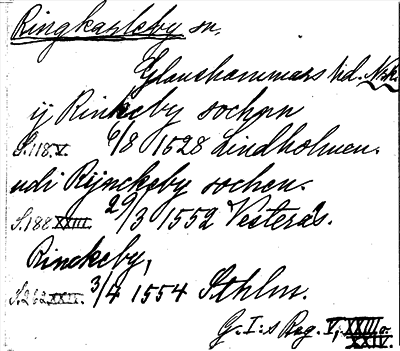 Ringkarleby sn,
Glanshammars hd. Nrk.
ij Rinkeby sochnn
S.118.V. 9/8 1528 Lindholmen.
udi Rijnckeby sochen.
S.188 XXIII. 29/3 1552 Vesterås.
Rinckeby,
S.262 XXIV. 3/4 1554 Sthlm.
G. I:s Reg. V, XXIII o.
XXIV.